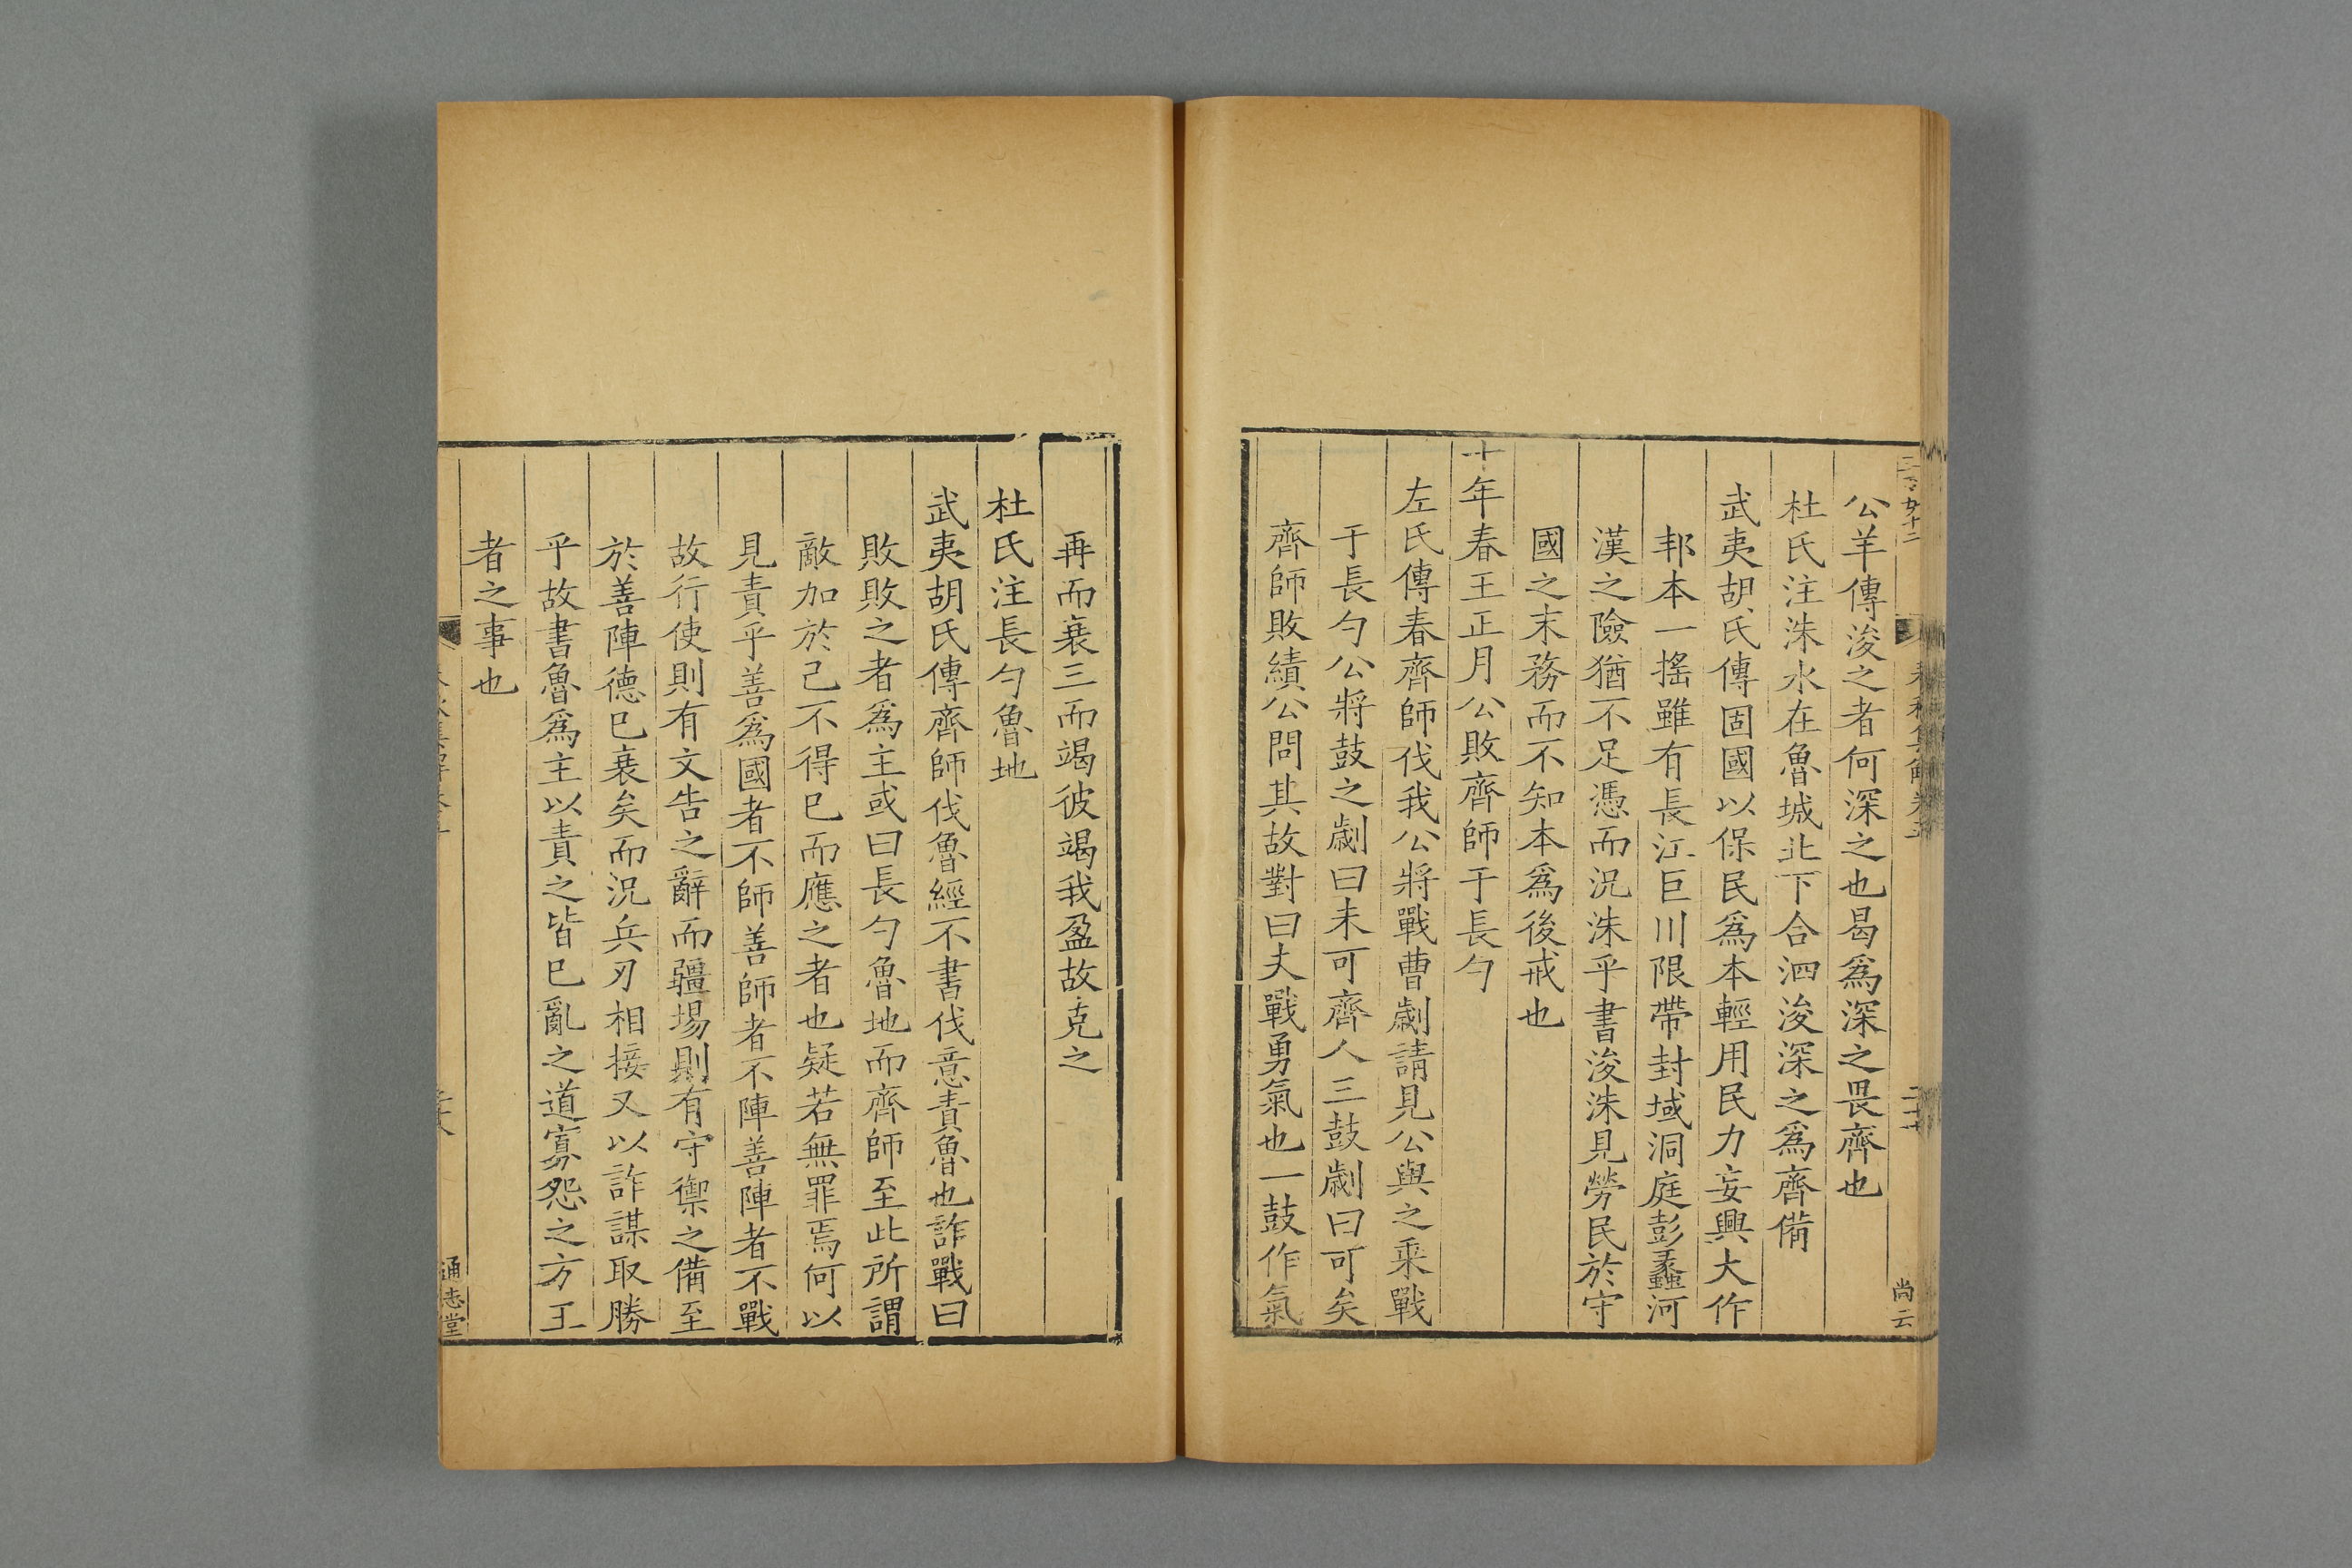 公羊傳浚之者何深之也曷爲深之畏齊也
杜氏注洙水在魯城北下合泗浚深之爲齊備
武夷胡氏傳固國以保民爲本輕用民力妄興大作
邦本一搖雖有長江巨川限帶封域洞庭彭蠡河
漢之險猶不足憑而況洙乎書浚洙見勞民於守
國之末務而不知本爲後戒也
十年春王正月公敗齊師于長勺
左氏傳春齊師伐我公將戰曹劌請見公與之乘戰
于長勺公將鼓之劌曰未可齊人三鼓劌曰可矣
齊師敗績公問其故對曰夫戰勇氣也一鼓作氣
再而衰三而竭彼竭我盈故克之
杜氏注長勺魯地
武夷胡氏傳齊師伐魯經不書伐意責魯也詐戰曰
敗敗之者爲主或曰長勺魯地而齊師至此所謂
敵加於己不得已而應之者也疑若無罪焉何以
見責乎善爲國者不師善師者不陣善陣者不戰
故行使則有文告之辭而疆場則有守禦之備至
於善陣德已衰矣而況兵刃相接又以詐謀取勝
乎故書魯爲主以責之皆已亂之道寡怨之方王
者之事也
通志堂
尚云